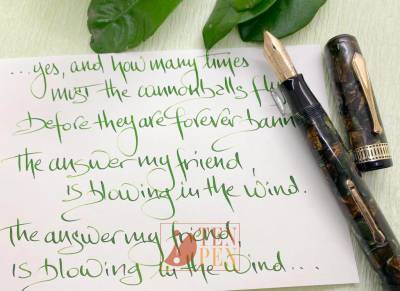 ...yes, and how many times
must the cannonballs fly
before they are forever bann
The answer my friend,
is blowing in the wind.
The answer my friend,
is blowing in the wind...
PEN
PEX